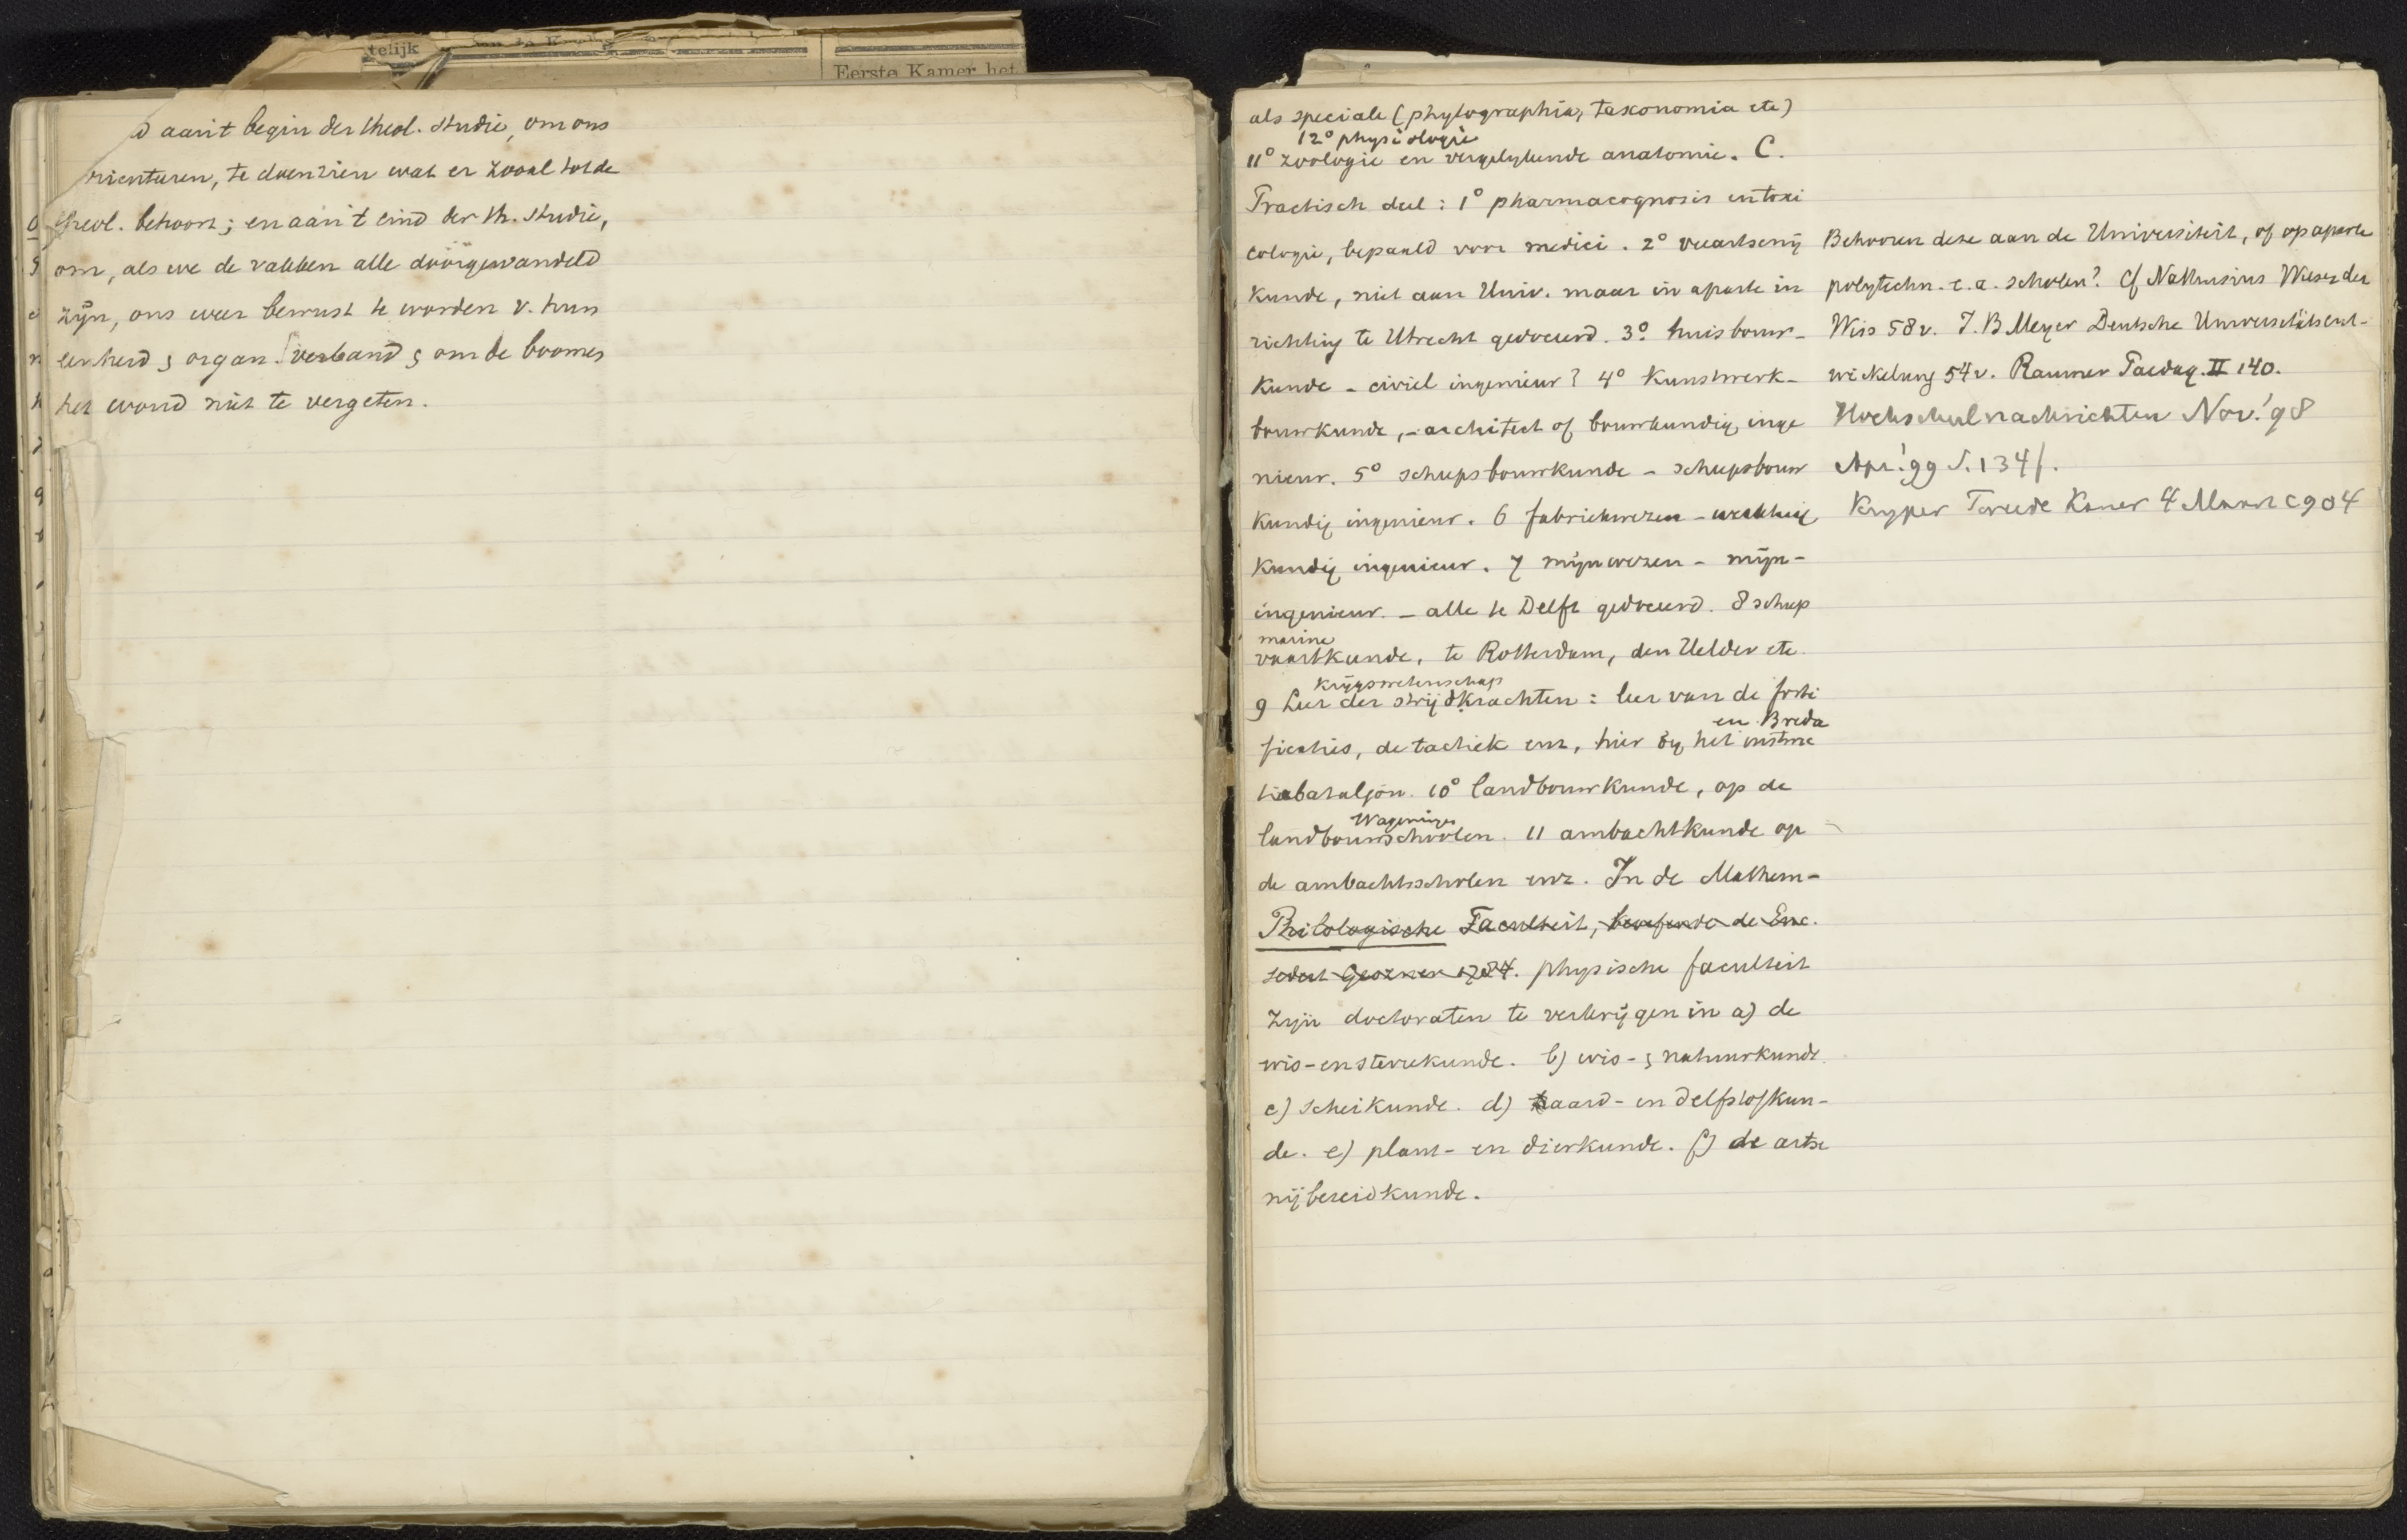 telijk
Eerste Kamer het
aan 't begin der theol. studie, om ons
orienteren, te doen zien wat er zooal tot de
theol. behoort; en aan 't eind der th. studie,
om, als we de vakken alle doorgewandeld
zijn, ons weer bewust te worden v. hun
eenheid & organ. verband & om de boomen
het woud niet te vergeten.
als speciale (phytographia, taxonomia etc)
12° physiologie
11° zoologie en vergelykende anatomie. C.
Practisch deel: 1° pharmacognosis en toxi
cologie, bepaald voor medici. 2° veeartsenij
kunde, niet aan Univ. maar in aparte in
richting te Utrecht gedoceerd. 3° huisbouw-
kunde - civiel ingenieur? 4° kunstwerk-
bouwkunde, - architect of bouwkundig inge
nieur. 5° scheepsbouwkunde - scheepsbouw
kundig ingenieur. 6 fabriekwezen - werktuig
kundig ingenieur. 7 mijnwezen - mijn-
ingenieur. - alle te Delft gedoceerd. 8 scheep
marine
vaartkunde, te Rotterdam, den Helder etc.
krijgswetenschap
9 Leer der strijdkrachten: leer van de forti
en Breda
ficaties, de tactiek enz, hier bij het instruc
tiebataljon. 10° landbouwkunde, op de
Wageningen
landbouwscholen. 11 ambachtkunde op
de ambachtsscholen enz. In de Mathem-
Philologische Faculteit, de Enc.
sedert Gesner 1784. physische faculteit
zijn doctoraten te verkrijgen in a) de
wis- en sterrekunde. b) wis- & natuurkunde.
c) scheikunde. d) aard- en delfstofkun-
de. e) plant- en dierkunde. f) de artse
nijbereidkunde.
Behooren deze aan de Universiteit, of op aparte
polytechn. e.a. scholen? Cf Nathusius Wesen der
Wiss 58v. J. B Meyer Deutsche Universitätsent-
wickelung 54v. Raumer Paedag. II 140.
Hochschulnachrichten Nov. '98
Apr. '99 S. 134f.
Kuyper Tweede Kamer 4 Maart 1904